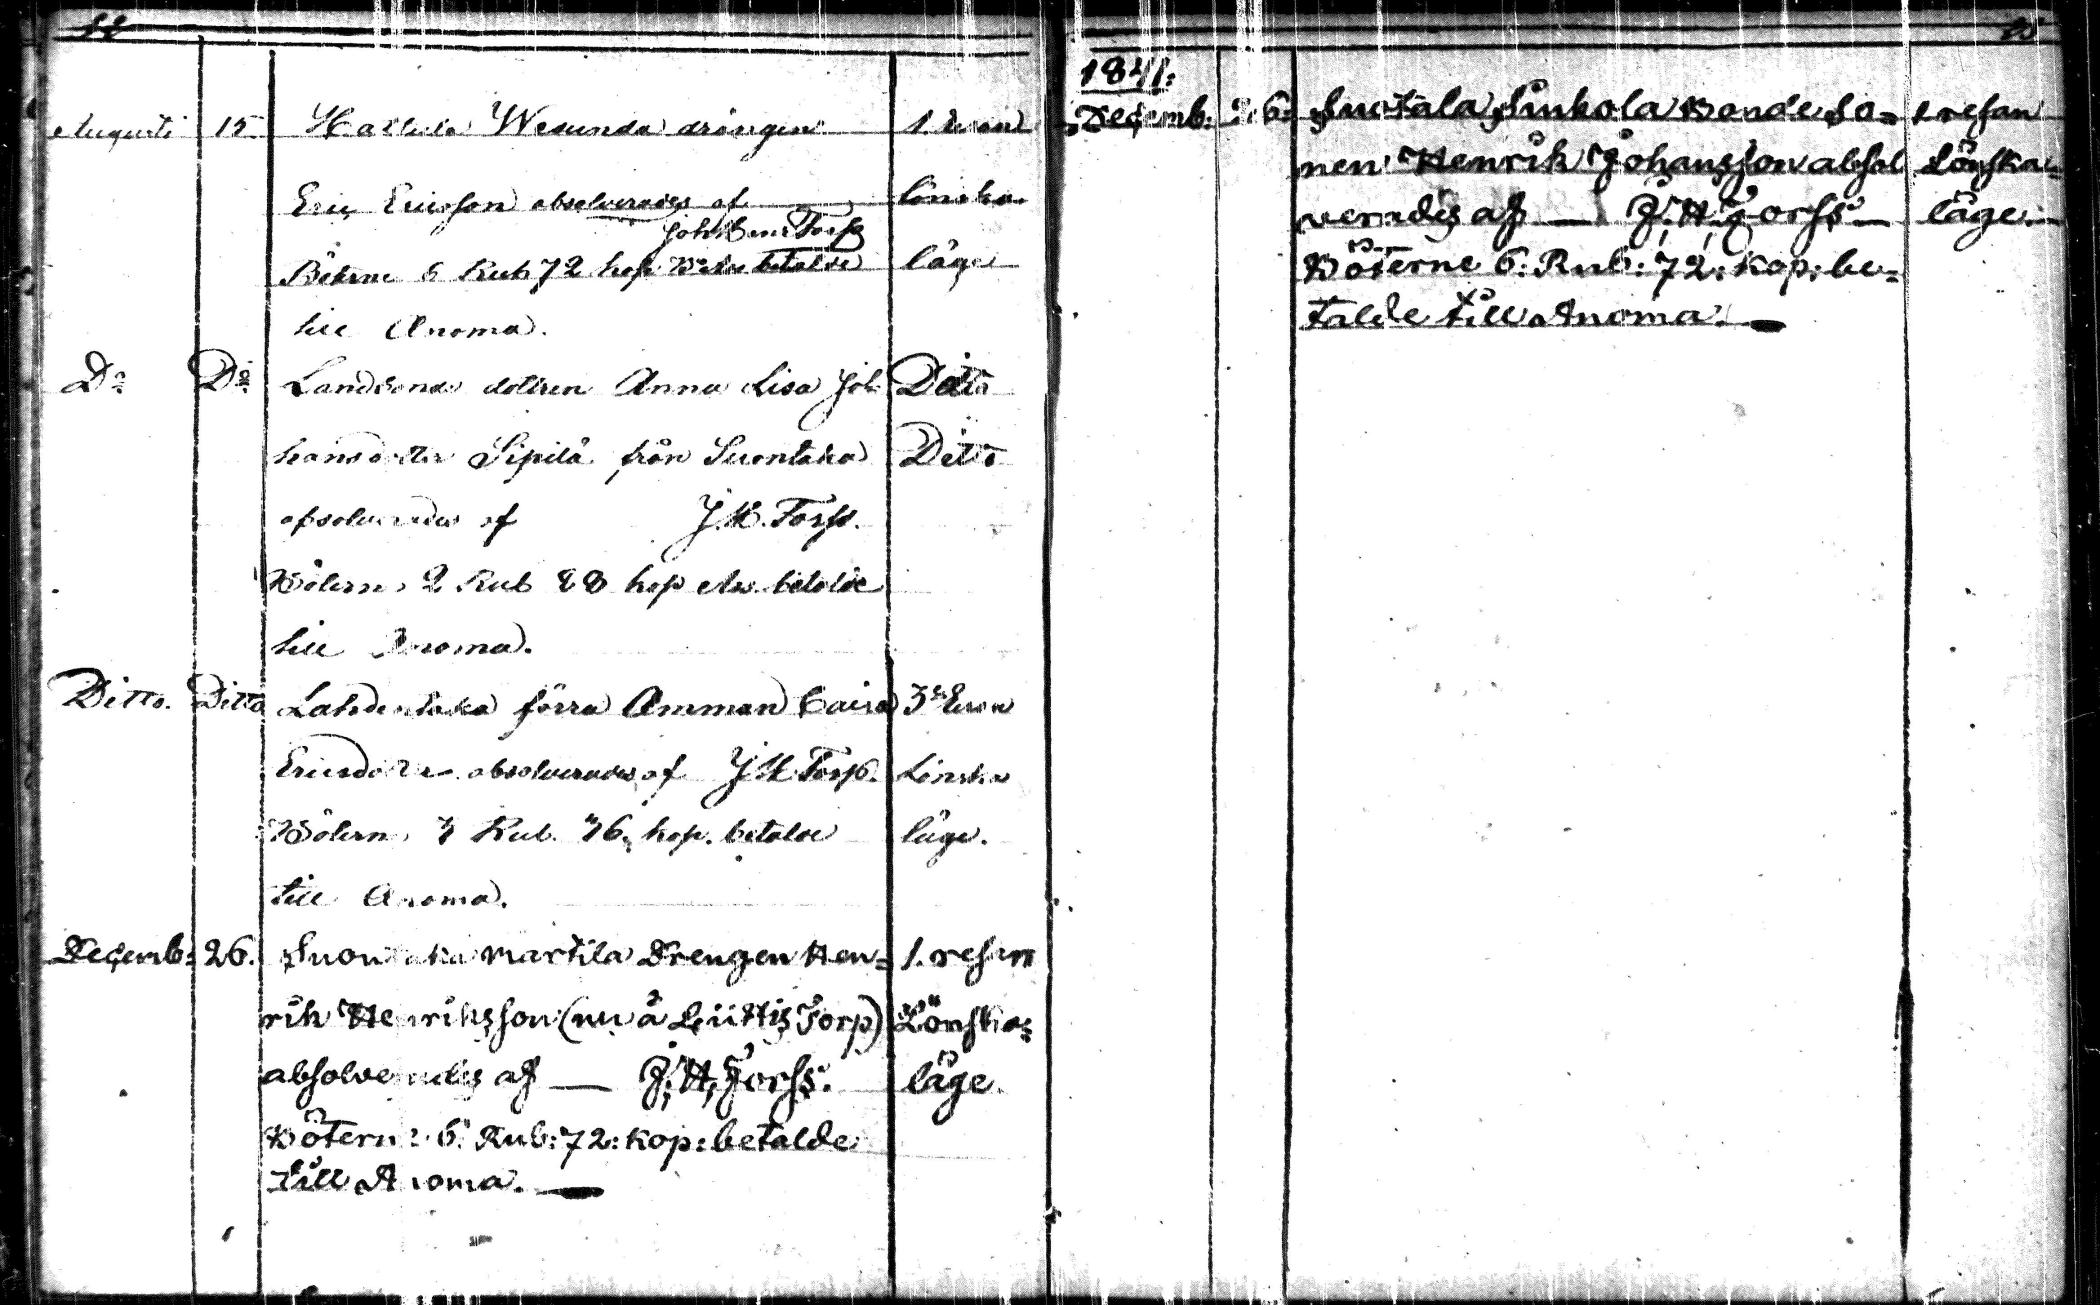 Augusti 15. Hallula Wesunda drängen 1 resan
Eric Ericsson absolverades af lönska
Joh Henr Forss
Böterne 6 Rub 72 kop betalde läge
till Anoma.
Do Do Landbonde dottren Anna Lisa Jo Ditto
hansdotter Sipilä från Suontaka Ditto
absolverades af J.H. Forss.
Böterne 2 Rub 88 kop betalde
till Anoma.
Ditto. Ditto Lahdentaka förra Amman Caisa 3e resan
Ericsdotter absolverades af J H Forss. Lönska
Böterne 3 Rub. 36. kop. betalde läge.
till Anoma.
Decemb: 26. Suontaka Martila Drengen Hen= 1. resan
rik Henriksson (nu å Torp) Lönska=
absolverades af — J. H. Forss. läge.
Böterne 6. Rub: 72: kop: betalde
till Anoma. —
1841:
Decemb: 26: Sinkola Bonde So= 1 resan
nen Henrik Johansson absol Lönska=
verades af — J. H. Forss — läge. —
Böterne 6: Rub: 72: kop: be=
talde till Anoma. —